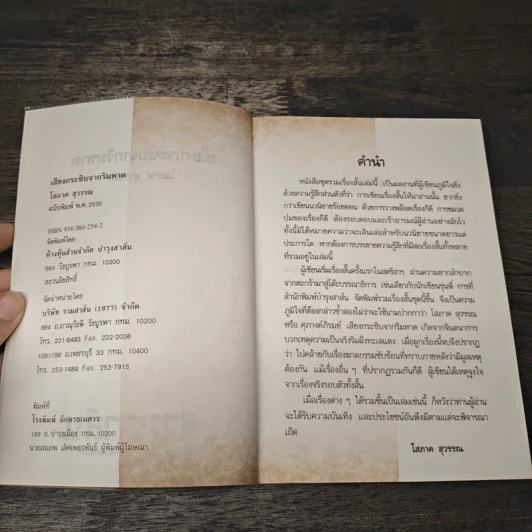 เสียงกระซิบจากริมหาด
โสภาค สุวรรณ
ฉบับพิมพ์ พ.ศ. 2535
ISBN 974-360-254-2
จัดพิมพ์โดย
ห้างหุ้นส่วนจำกัด บำรุงสาส์น
864 วังบูรพา กทม. 10200
สงวนลิขสิทธิ์
จัดจำหน่ายโดย
บริษัท รวมสาส์น (1977) จำกัด
864 ถ.ภาณุรังษี วังบูรพา กทม. 10200
โทร. 221-6483 Fax. 222-2036
1091/86 ถ.เพชรบุรี 33 กทม. 10400
โทร. 253-1489 Fax. 253-7915
พิมพ์ที่
โรงพิมพ์ อักษรธเนศวร
189 ถ.บำรุงเมือง กทม. 10200
นายสมภพ เลิศเพชรพันธ์ ผู้พิมพ์ผู้โฆษณา
คำนำ
หนังสือชุดรวมเรื่องสั้นเล่มนี้ เป็นผลงานที่ผู้เขียนภูมิใจยิ่ง
ด้วยความรู้สึกส่วนตัวที่ว่า การเขียนเรื่องสั้นให้น่าอ่านนั้น ยากยิ่ง
กว่าเขียนนวนิยายร้อยตอน ด้วยการวางพล็อตเรื่องก็ดี การขมวด
ปมของเรื่องก็ดี ต้องรอบคอบและเร้าอารมณ์ผู้อ่านอย่างฉับไว
ทั้งนี้มิได้หมายความว่าจะเดินเล่อสำหรับนวนิยายขนาดยาวแต่
ประการใด หากต้องการบรรยายความรู้สึกที่มีต่อเรื่องสั้นทั้งหลาย
ที่รวมอยู่ในเล่มนี้
ผู้เขียนเริ่มเรื่องสั้นครั้งแรกในสตรีสาร ผ่านความยากลำบาก
จากตะกร้ามาสู่โต๊ะบรรณาธิการ เช่นเดียวกับนักเขียนรุ่นพี่ การที่
สำนักพิมพ์บำรุงสาส์น จัดพิมพ์รวมเรื่องสั้นชุดนี้ขึ้น จึงเป็นความ
ภูมิใจที่ต้องกล่าวซ้ำสองไม่ว่าจะใช้นามปากกาว่า โสภาค สุวรรณ
หรือ ศุภางค์ภิรมย์ เสียงกระซิบจากริมหาด เกิดจากจินตนาการ
บวกเหตุความเป็นจริงริมฝั่งทะเลแดง เมื่อผูกเรื่องนี้จบจึงปรากฏ
ว่า ไปคล้ายกับเรื่องฆาตกรรมซับซ้อนที่ทราบภายหลังว่ามีมูลเหตุ
ต้องกัน แม้เรื่องอื่น ๆ ที่ปรากฏรวมกันก็ดี ผู้เขียนได้เหตุจูงใจ
จากเรื่องจริงรอบตัวทั้งสิ้น
เมื่อเรื่องต่าง ๆ ได้รวมขึ้นเป็นเล่มเช่นนี้ ก็หวังว่าท่านผู้อ่าน
จะได้รับความบันเทิง และประโยชน์อันพึงมีตามแต่จะพิจารณา
เถิด
โสภาค สุวรรณ